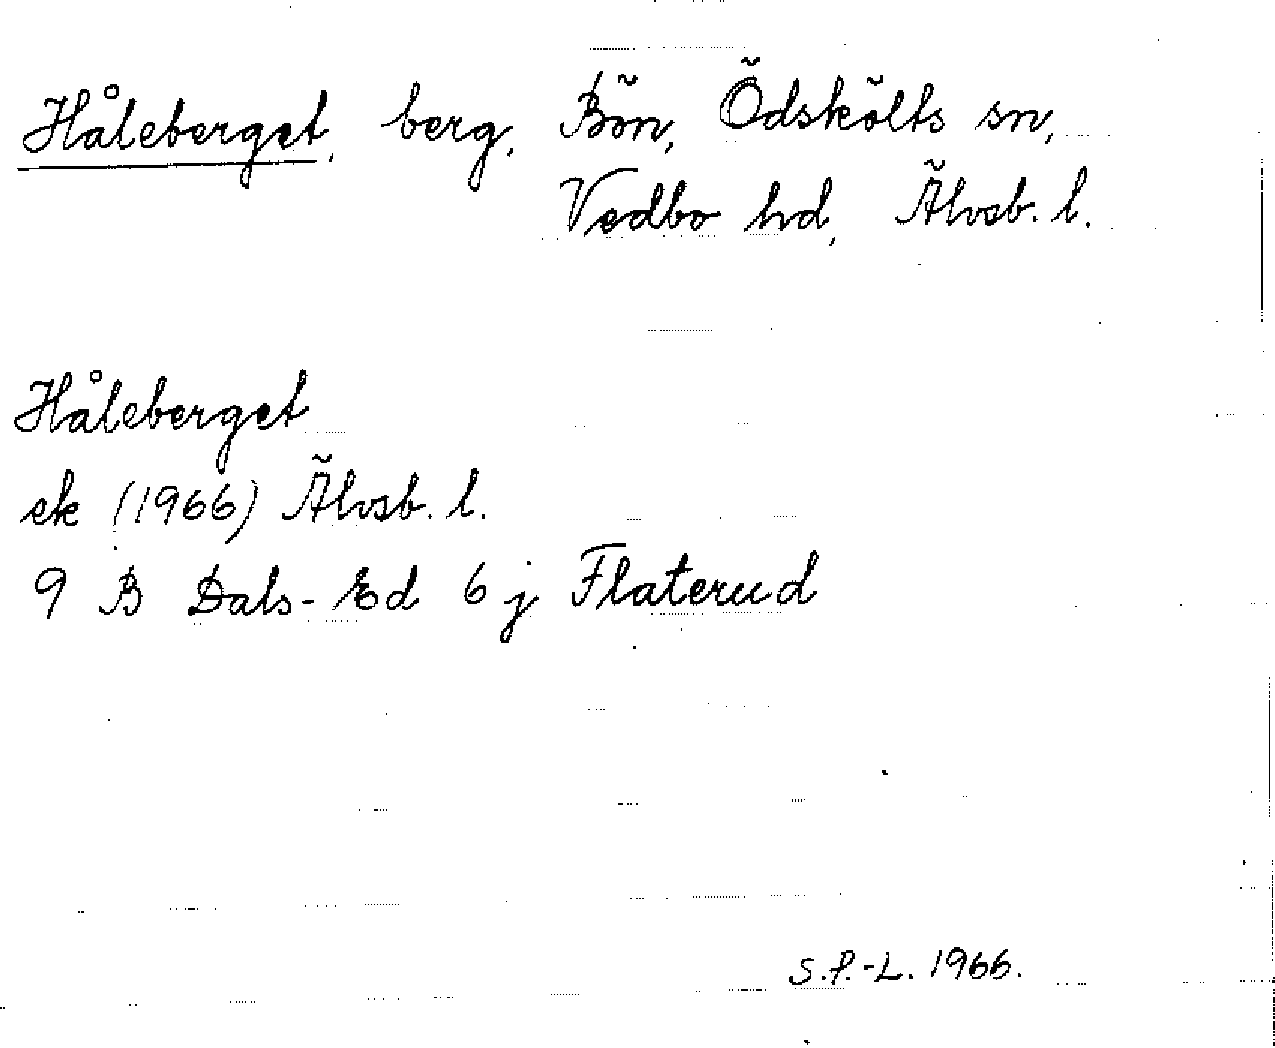 Håleberget, berg, Bön, Ödskölts sn,
Vedbo hd, Älvsb. l.
Håleberget
ek (1966) Älvsb. l.
9 B Dals-Ed 6 j Flaterud
S.P.-L. 1966.